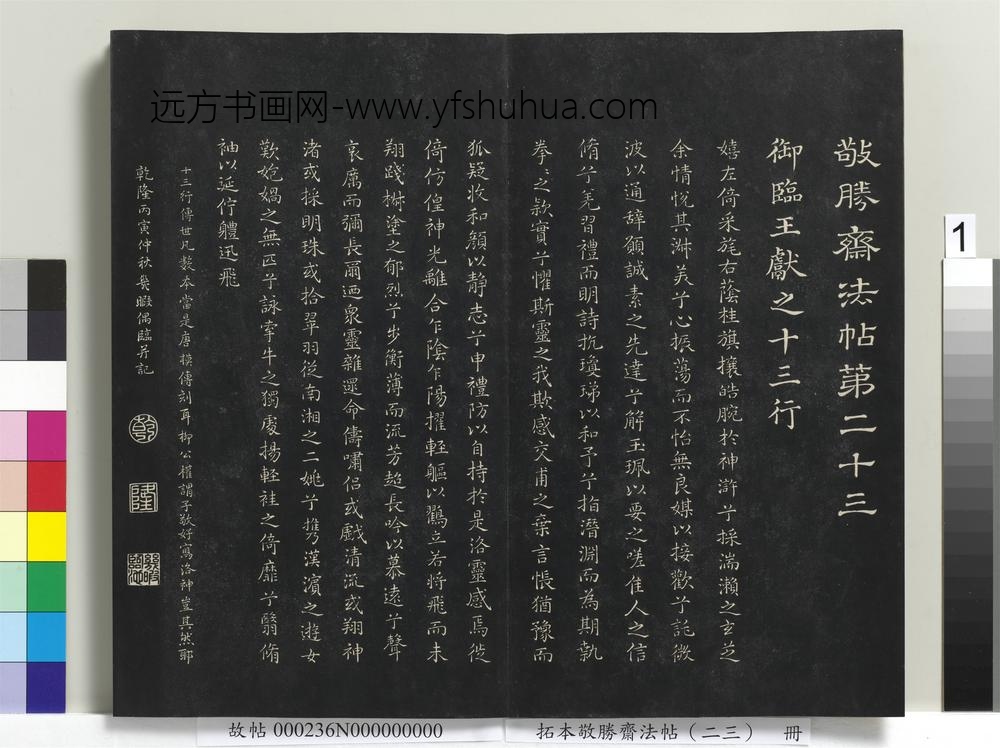 远方书画网-www.yfshuhua.com
敬勝齋法帖第二十三
御臨王獻之十三行
嬉左倚采旄右蔭桂旗攘皓腕於神滸兮採湍瀨之玄芝
余情悅其淑美兮心振蕩而不怡無良媒以接歡兮託微
波以通辭願誠素之先達兮解玉珮以要之嗟佳人之信
脩兮羌習禮而明詩抗瓊珶以和予兮指潛淵而為期執
拳〻之款實兮懼斯靈之我欺感交甫之棄言悵猶豫而
狐疑收和顏以静志兮申禮防以自持於是洛靈感焉徙
倚仿偟神光離合乍陰乍陽擢輕軀以鶴立若將飛而未
翔踐椒塗之郁烈兮步衡薄而流芳超長吟以慕遠兮聲
哀厲而彌長爾迺眾靈雜遝命儔嘯侶或戲清流或翔神
渚或採明珠或拾翠羽從南湘之二姚兮携漢濱之遊女
歎匏媧之無匹兮詠牽牛之獨處揚輕袿之倚靡兮翳脩
袖以延佇軆迅飛
十三行傳世凡數本當是唐摸傳刻耳柳公權謂子敬好寫洛神豈其然耶
乾隆丙寅仲秋幾暇偶臨并記
乾
隆
1
故帖 000236N000000000
拓本敬勝齋法帖（二三） 冊